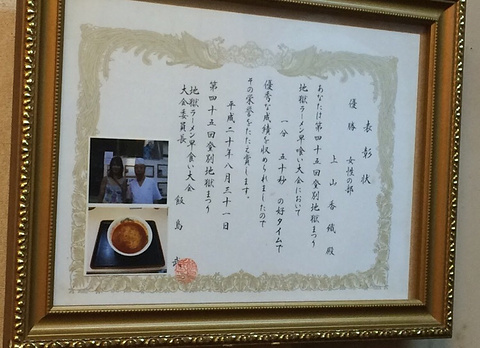 表彰状
優勝 女性の部
上山香織殿
あなたは第四十五回登別地獄まつり
地獄ラーメン早喰い大会において
一分 五十秒 の好タイムで
優秀な成績を収められましたので
その栄誉をたたえ賞します。
平成二十年八月三十一日
第四十五回登別地獄まつり
地獄ラーメン早喰い大会
大会委員長 飯島